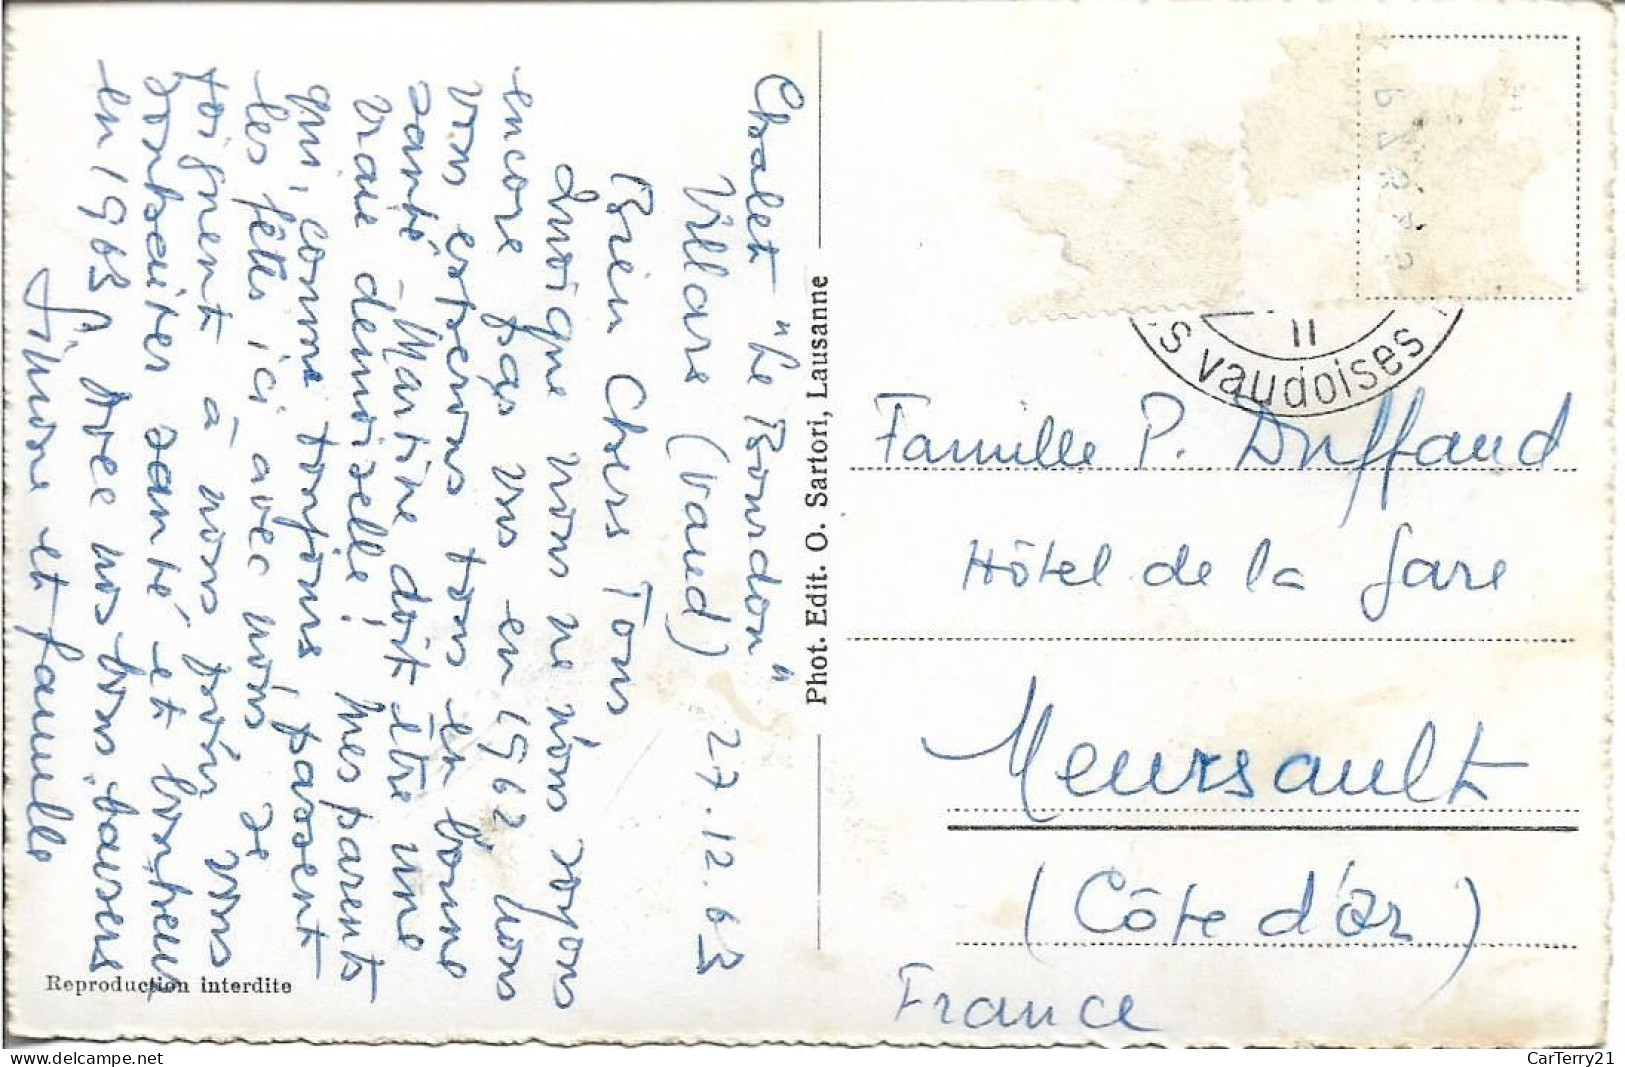 Chalet "Le Bourdon"
Villars (Vaud) 27.12.63
Bien Chers Tous
Quoique nous ne nous soyons
encore pas vus en 1962 nous
vous espérons tous en bonne
santé. Martine doit être une
vraie demoiselle! Mes parents
qui, comme toujours, passent
les fêtes ici avec nous se
joignent à nous pour vous
souhaiter santé et bonheur
en 1963 Avec nos bons baisers
Simone et famille
Reproduction interdite
Phot. Edit. O. Sartori, Lausanne
s vaudoises
II
Famille P. Duffaud
Hôtel de la Gare
Meursault
(Côte d'Or)
France
CarTerry21